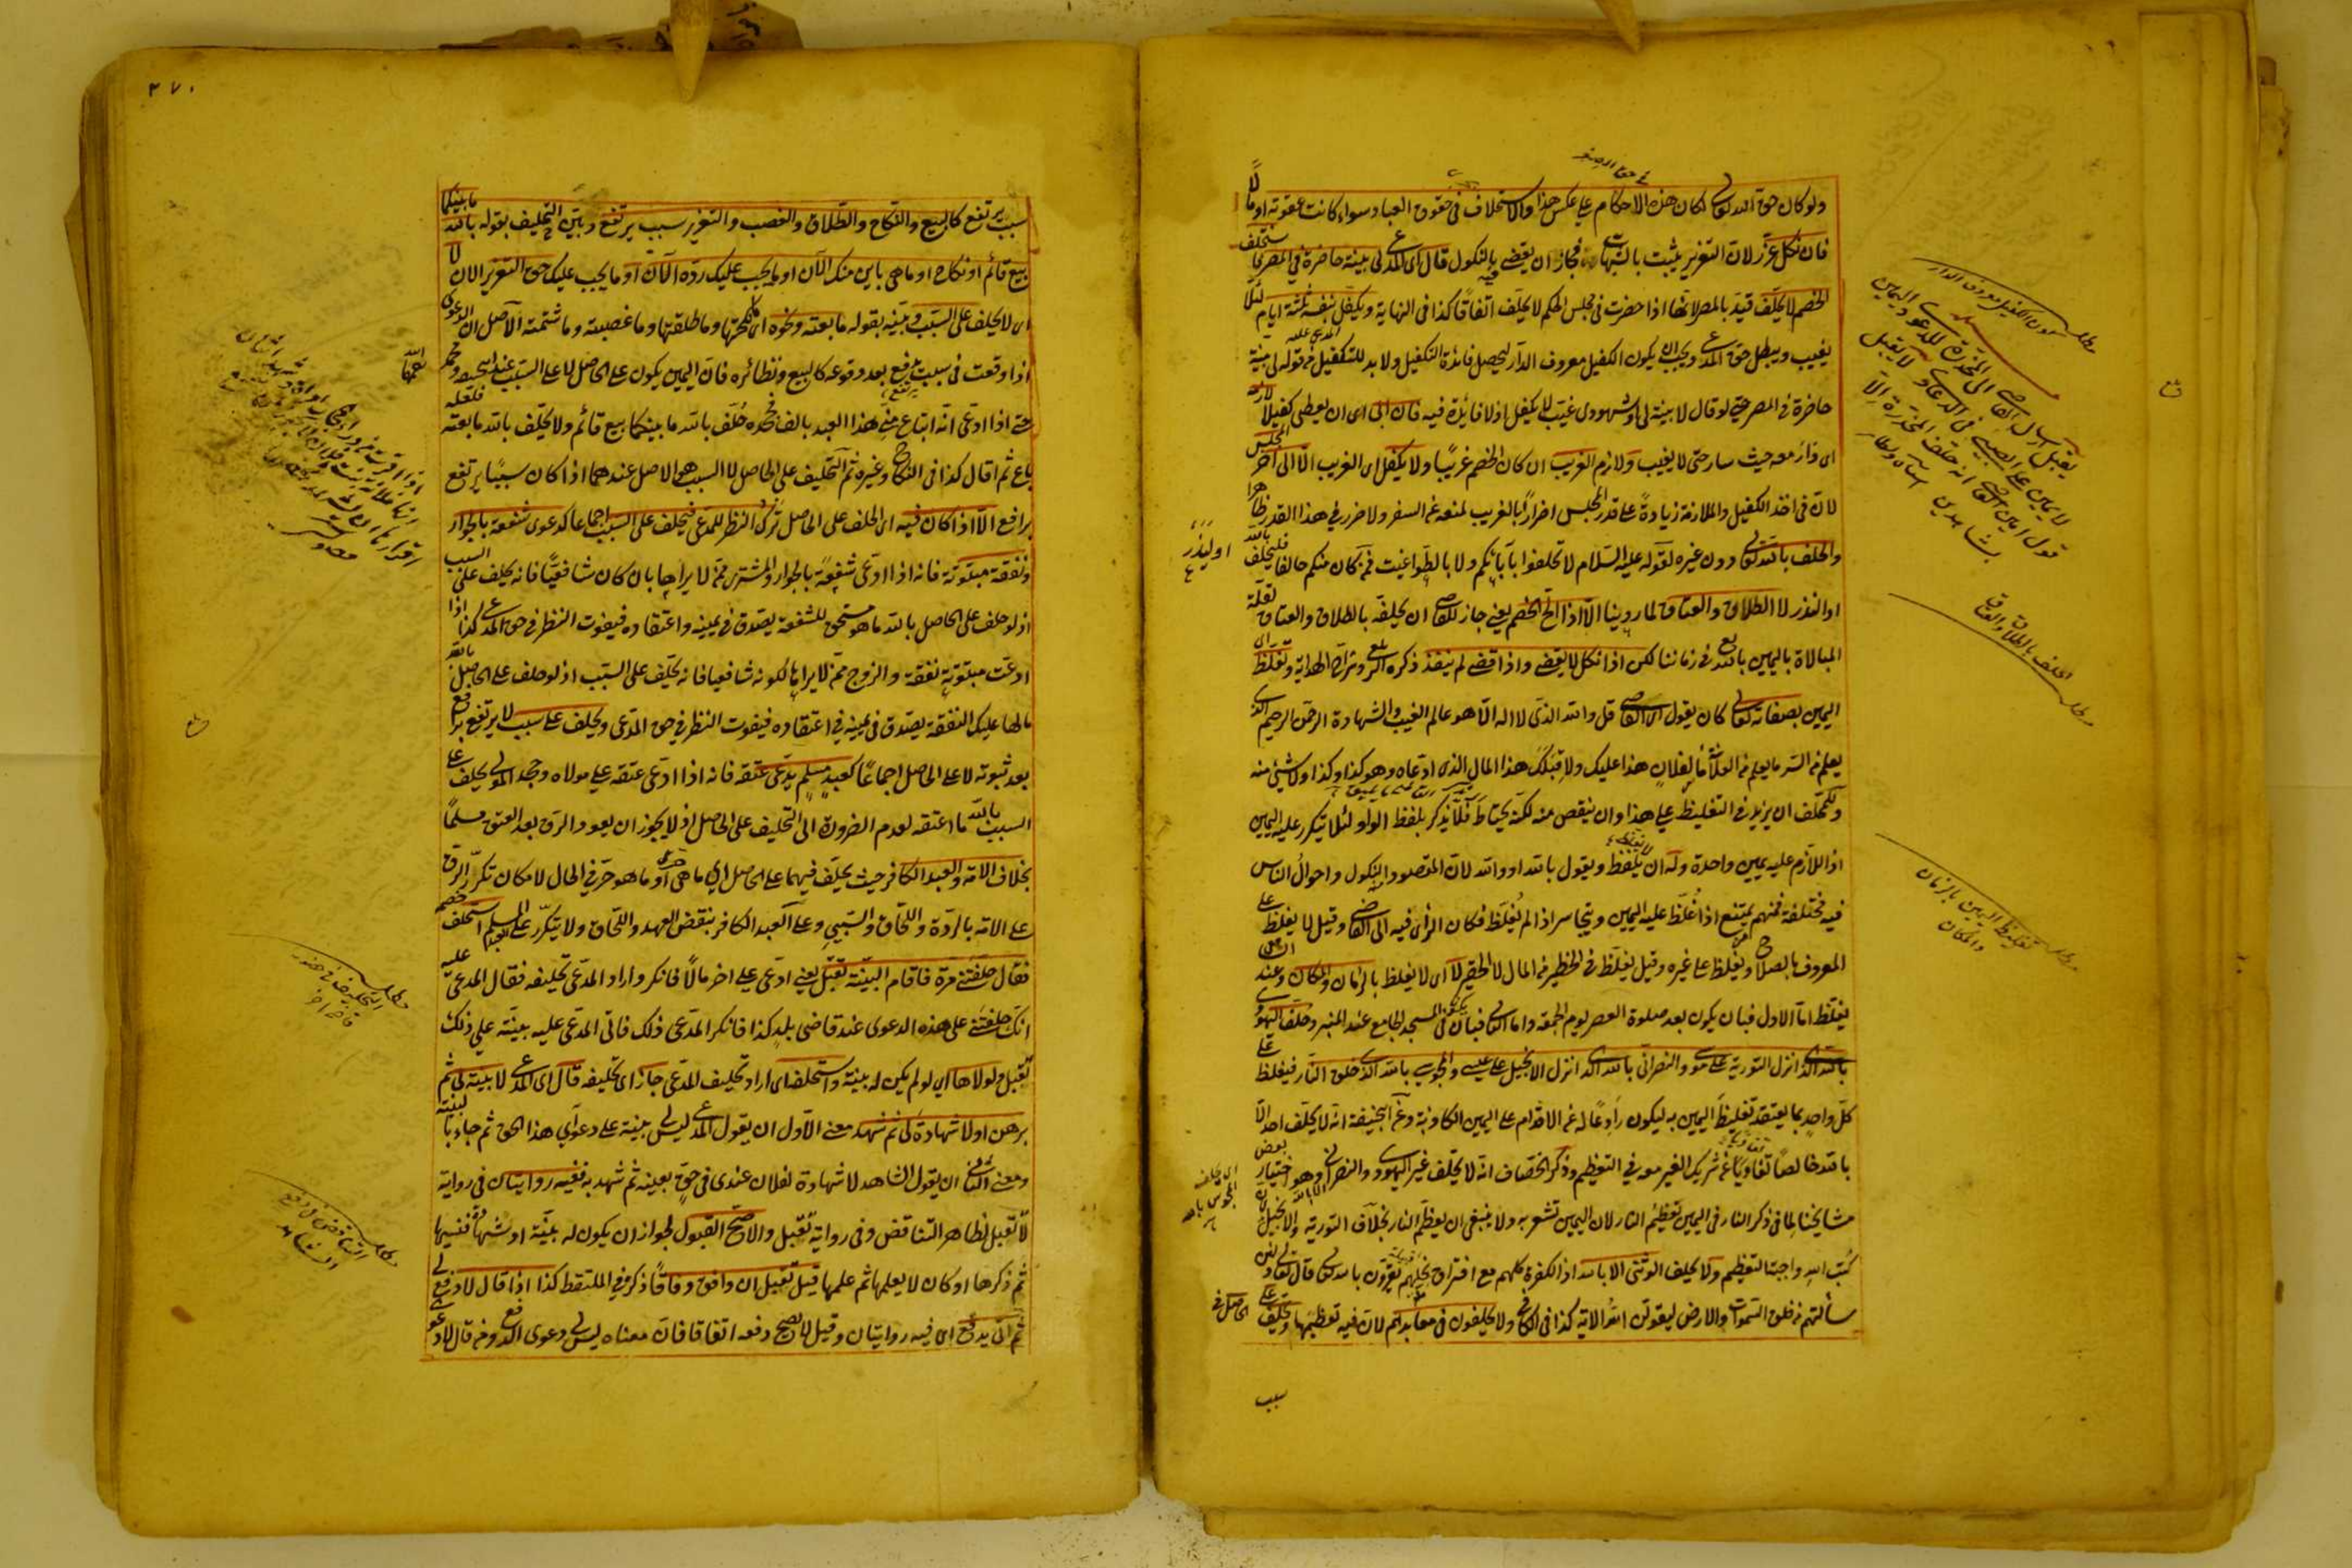 ولو كان حق الله تعالى لكان هذه الاحكام على عكس هذا والاستحلاف في حقوق العباد سواء كانت عقوبة او مالا
فان نكل عزر لان التعزير يثبت بالشبهات فجاز ان يقضى فيه بالنكول قال اى المدعى لى بينة حاضرة في المصر يستحلف
الخصم لا يحلف قيد بالمصر لانها اذا حضرت في مجلس الحكم لا يحلف اتفاقا كذا في النهاية ويكفل بنفسه ثلثة ايام لئلا
يغيب ويبطل حق المدعى ويجب ان يكون الكفيل معروف الدار ليحصل فائدة التكفيل ولا بد للتكفيل من قوله لى بينة
حاضرة في المصر حتى لو قال لا بينة لى او شهودى غيب لا يكفل اذ لا فائدة فيه فان ابى اى ان يعطى كفيلا لازمه
اى دار معه حيث سار حتى لا يغيب ولازم الغريب ان كان الخصم غريبا ولا يكفل اى الغريب الا الى اخر المجلس
لان في اخذ الكفيل والملازمة زيادة على قدر المجلس اضرارا بالغريب لمنعه عن السفر ولا ضرر في هذا القدر ظاهرا
والحلف بالله تعالى دون غيره لقوله عليه السلام لا تحلفوا بآبائكم ولا بالطواغيت فمن كان منكم حالفا فليحلف بالله
او ليذر لا الطلاق والعتاق لما روينا الا اذا الح الخصم يعنى جاز للقاضى ان يحلفه بالطلاق والعتاق لقلة
المبالاة باليمين بالله تعالى في زماننا لكن اذا نكل لا يقضى واذا قضى لم ينفذ ذكره الزيلعى وشراح الهداية وتغلظ اى
اليمين بصفاته تعالى كان يقول القاضى قل والله الذى لا اله الا هو عالم الغيب والشهادة الرحمن الرحيم الذى
يعلم من السر ما يعلم من العلانية ما لفلان هذا عليك ولا قبلك هذا المال الذى ادعاه وهو كذا وكذا ولا شئ منه
وللمحلف ان يزيد في التغليظ على هذا وان ينقص منه لكنه يحتاط فلا يذكر بلفظ الواو لئلا يتكرر عليه اليمين
اذ اللازم عليه يمين واحدة وله ان لا يغلظ ويقول بالله او والله لان المقصود النكول واحوال الناس
فيه مختلفة فمنهم يمتنع اذا غلظ عليه اليمين ويتجاسر اذا لم يغلظ فكان الرأى فيه الى القاضى وقيل لا يغلظ على
المعروف بالصلاح ويغلظ على غيره وقيل يغلظ في الخطير من المال لا الحقير لا اى لا يغلظ بالزمان والمكان وعند الشافعى
يغلظ اما الاول فبان يكون بعد صلوة العصر يوم الجمعة واما الثانى فبان يكون في المسجد الجامع عند المنبر وحلف اليهودى
بالله الذى انزل التورية على موسى والنصرانى بالله الذى انزل الانجيل على عيسى والمجوسى بالله الذى خلق النار فيغلظ على
كل واحد بما يعتقد تغليظ اليمين به ليكون رادعا له عن الاقدام على اليمين الكاذبة وعن ابى حنيفة انه لا يحلف احد الا
بالله خالصا تفاديا عن شريك الغير معه في التعظيم وذكر الخصاف انه لا يحلف غير اليهود والنصرانى الا بالله وهو اختيار بعض
مشايخنا لما في ذكر النار في اليمين تعظيم النار لان اليمين تشعر به ولا ينبغى ان يعظم النار بخلاف التورية والانجيل لان
كتب الله واجبة التعظيم ولا يحلف الوثنى الا بالله اذ الكفرة كلهم مع افتراق نحلهم يقرون بالله تعالى قال تعالى ولئن
سألتهم من خلق السموات والارض ليقولن الله الآية كذا في الكافى ولا يحلفون في معابدهم لان فيه تعظيمها وتحليف على الحاصل في
سبب
في حق الصغير
مطلب كون الكفيل معروف الدار
مطلب الحلف بالطلاق والعتاق
مطلب تغليظ اليمين بالزمان والمكان
٣٧٠
سبب يرتفع كالبيع والنكاح والطلاق والغصب والتعزير سبب يرتفع وبين التحليف بقوله بالله ما بينكما
بيع قائم او نكاح او ما هى باين منك الآن او ما يجب عليك رده الآن او ما يجب عليك حق التعزير الان لا
اى لا يحلف على السبب وبينه بقوله ما بعته ونحوه اى ما نكحتها وما طلقتها وما غصبته وما شتمته الاصل ان الدعوى
اذا وقعت في سبب يرتفع بعد وقوعه كالبيع ونظائره فان اليمين يكون على الحاصل لا على السبب عند ابى حنيفة ومحمد
حتى اذا ادعى انه ابتاع منه هذا العبد بالف فجحده حلف بالله ما بينكما بيع قائم ولا يحلف بالله ما بعته فلعله
باع ثم اقال كذا في النكاح وغيره ثم التحليف على الحاصل لا السبب هو الاصل عندهما اذا كان سببا يرتفع
برافع الا اذا كان فيه اى الحلف على الحاصل ترك النظر للمدعى فيحلف على السبب اجماعا كدعوى شفعة بالجوار
ونفقة مبتوتة فانه اذا ادعى شفعة بالجوار والمشترى ممن لا يراها بان كان شافعيا فانه يحلف على السبب
اذ لو حلف على الحاصل بالله ما هو مستحق للشفعة يصدق في يمينه واعتقاده فيفوت النظر في حق المدعى كذا اذا
ادعت مبتوتة نفقة والزوج ممن لا يراها لكونه شافعيا فانه يحلف على السبب اذ لو حلف على الحاصل بالله
ما لها عليك النفقة يصدق في يمينه في اعتقاده فيفوت النظر في حق المدعى ويحلف على سبب لا يرتفع برافع
بعد ثبوته لا على الحاصل اجماعا كعبد مسلم يدعى عتقه فانه اذا ادعى عتقه على مولاه وجحد المولى يحلف على
السبب بالله ما اعتقه لعدم الضرورة الى التحليف على الحاصل اذ لا يجوز ان يعود الرق بعد العتق مسلما
بخلاف الامة والعبد الكافر حيث يحلف فيهما على الحاصل اى ما هى حرة او ما هو حر في الحال لامكان تكرر الرق
على الامة بالردة واللحاق والسبى وعلى العبد الكافر بنقض العهد واللحاق ولا يتكرر على العبد المسلم استحلف خصمه
فقال حلفتنى مرة فاقام البينة تقبل يعنى ادعى على اخر مالا فانكر واراد المدعى تحليفه فقال المدعى عليه
انك حلفتنى على هذه الدعوى عند قاضى بلد كذا فانكر المدعى ذلك فاتى المدعى عليه بينة على ذلك
تقبل ولولاها اى لو لم يكن له بينة واستحلفه اى اراد تحليف المدعى جاز اى تحليفه قال اى المدعى لا بينة لى ثم
برهن او لا شهادة لى ثم شهد معنى الاول ان يقول المدعى ليس لى بينة على دعوى هذا الحق ثم جاء بالبينة
ومعنى الثانى ان يقول الشاهد لا شهادة لفلان عندى في حق بعينه ثم شهد به ففيه روايتان في رواية
لا تقبل لظاهر التناقض وفى رواية تقبل والاصح القبول لجواز ان يكون له بينة او شهادة فنسيها
ثم ذكرها او كان لا يعلمها ثم علمها قيل تقبل ان وافق وفاقا ذكره في الملتقط كذا اذا قال لا دفع لى
ثم اتى بدفع اى فيه روايتان وقيل لا يصح دفعه اتفاقا فان معناه ليس لى دعوى الدفع ومن قال لا دعوى
مطلب التحليف في حضور قاض اخر
مطلب التناقض لا دفع الشاهد